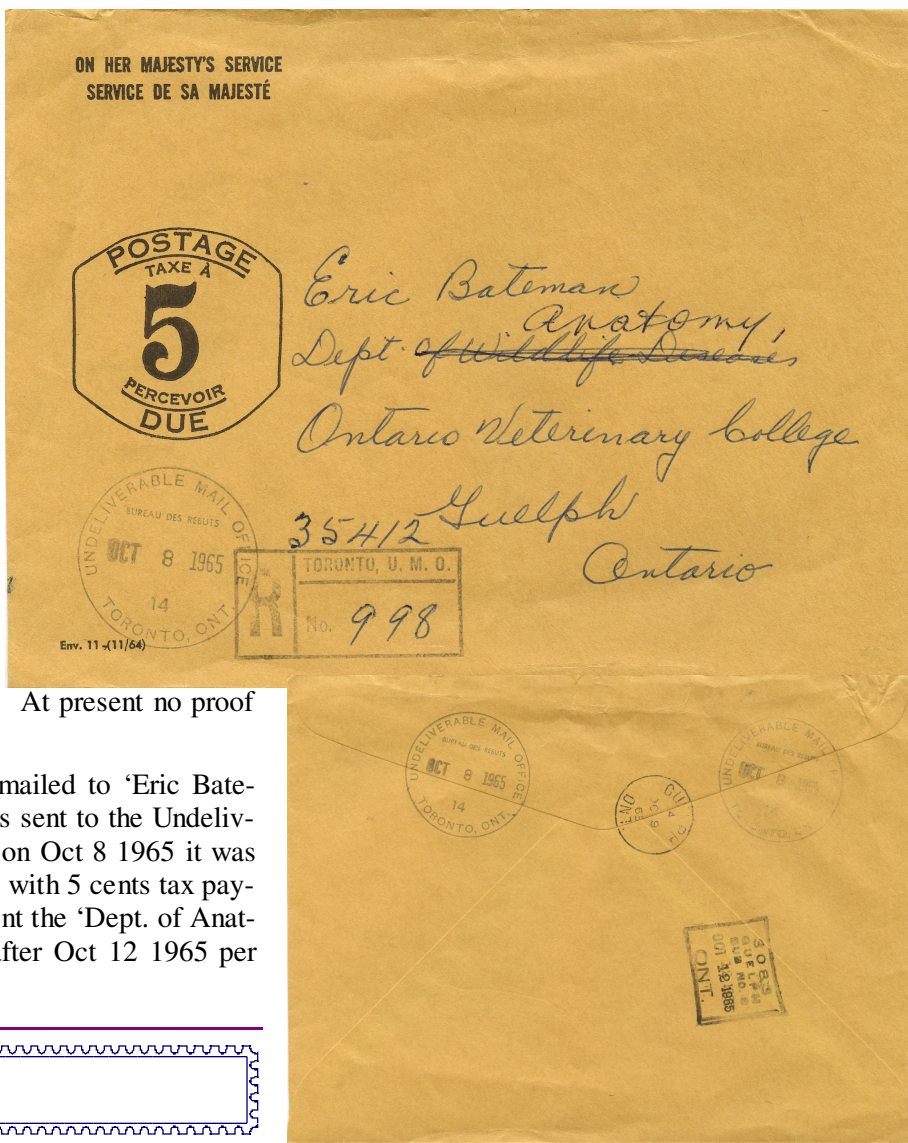 ON HER MAJESTY'S SERVICE
SERVICE DE SA MAJESTÉ
POSTAGE
TAXE À
5
PERCEVOIR
DUE
Eric Bateman
Anatomy,
Dept. of Wildlife Diseases
Ontario Veterinary College
Guelph
Ontario
35412
UNDELIVERABLE MAIL OFFICE
BUREAU DES REBUTS
OCT 8 1965
14
TORONTO, ONT.
R
TORONTO, U. M. O.
No. 998
Env. 11-(11/64)
At present no proof
mailed to ‘Eric Bate-
s sent to the Undeliv-
on Oct 8 1965 it was
with 5 cents tax pay-
nt the ‘Dept. of Anat-
fter Oct 12 1965 per
UNDELIVERABLE MAIL OFFICE
BUREAU DES REBUTS
OCT 8 1965
14
TORONTO, ONT.
UNDELIVERABLE MAIL
BUREAU DES REBUTS
OCT 8 1965
14
GU
OC 9
65
ONT
GUELPH
SUB NO. 
OCT 12 1965
ONT.